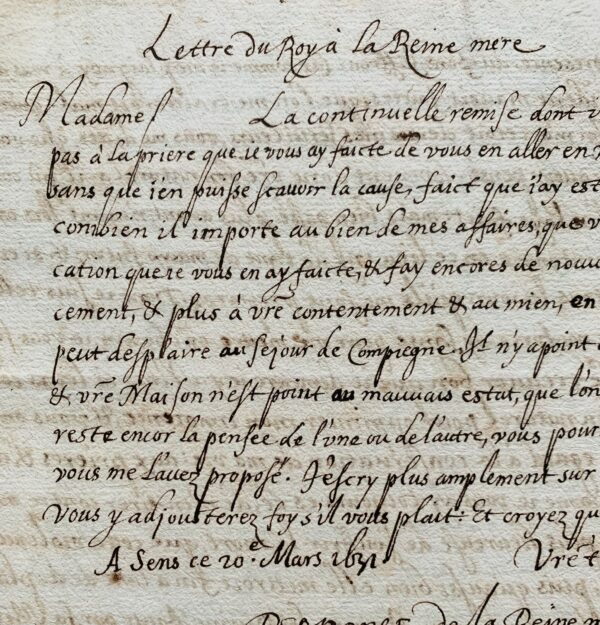 Lettre du Roy à la Reine mere
Madame La continuelle remise dont v
pas à la priere que ie vous ay faicte de vous en aller en
sans que i'en puisse scauoir la cause, faict que i'ay est
combien il importe au bien de mes affaires, que v
cation que ie vous en ay faicte, & fay encores de nouu
cement, & plus à vrē contentement & au mien, en
peut desplaire au sejour de Compiegne. Il n'y a point
& vrē Maison n'est point au mauvais estat, que l'on
reste encor la pensée de l'vne ou de l'autre, vous pour
vous me l'auez proposé. J'escry plus amplement sur
Vous y adjousterez foy s'il vous plait: Et croyez qu
A Sens ce 20.e Mars 1631 Vrē t
de la Reine m